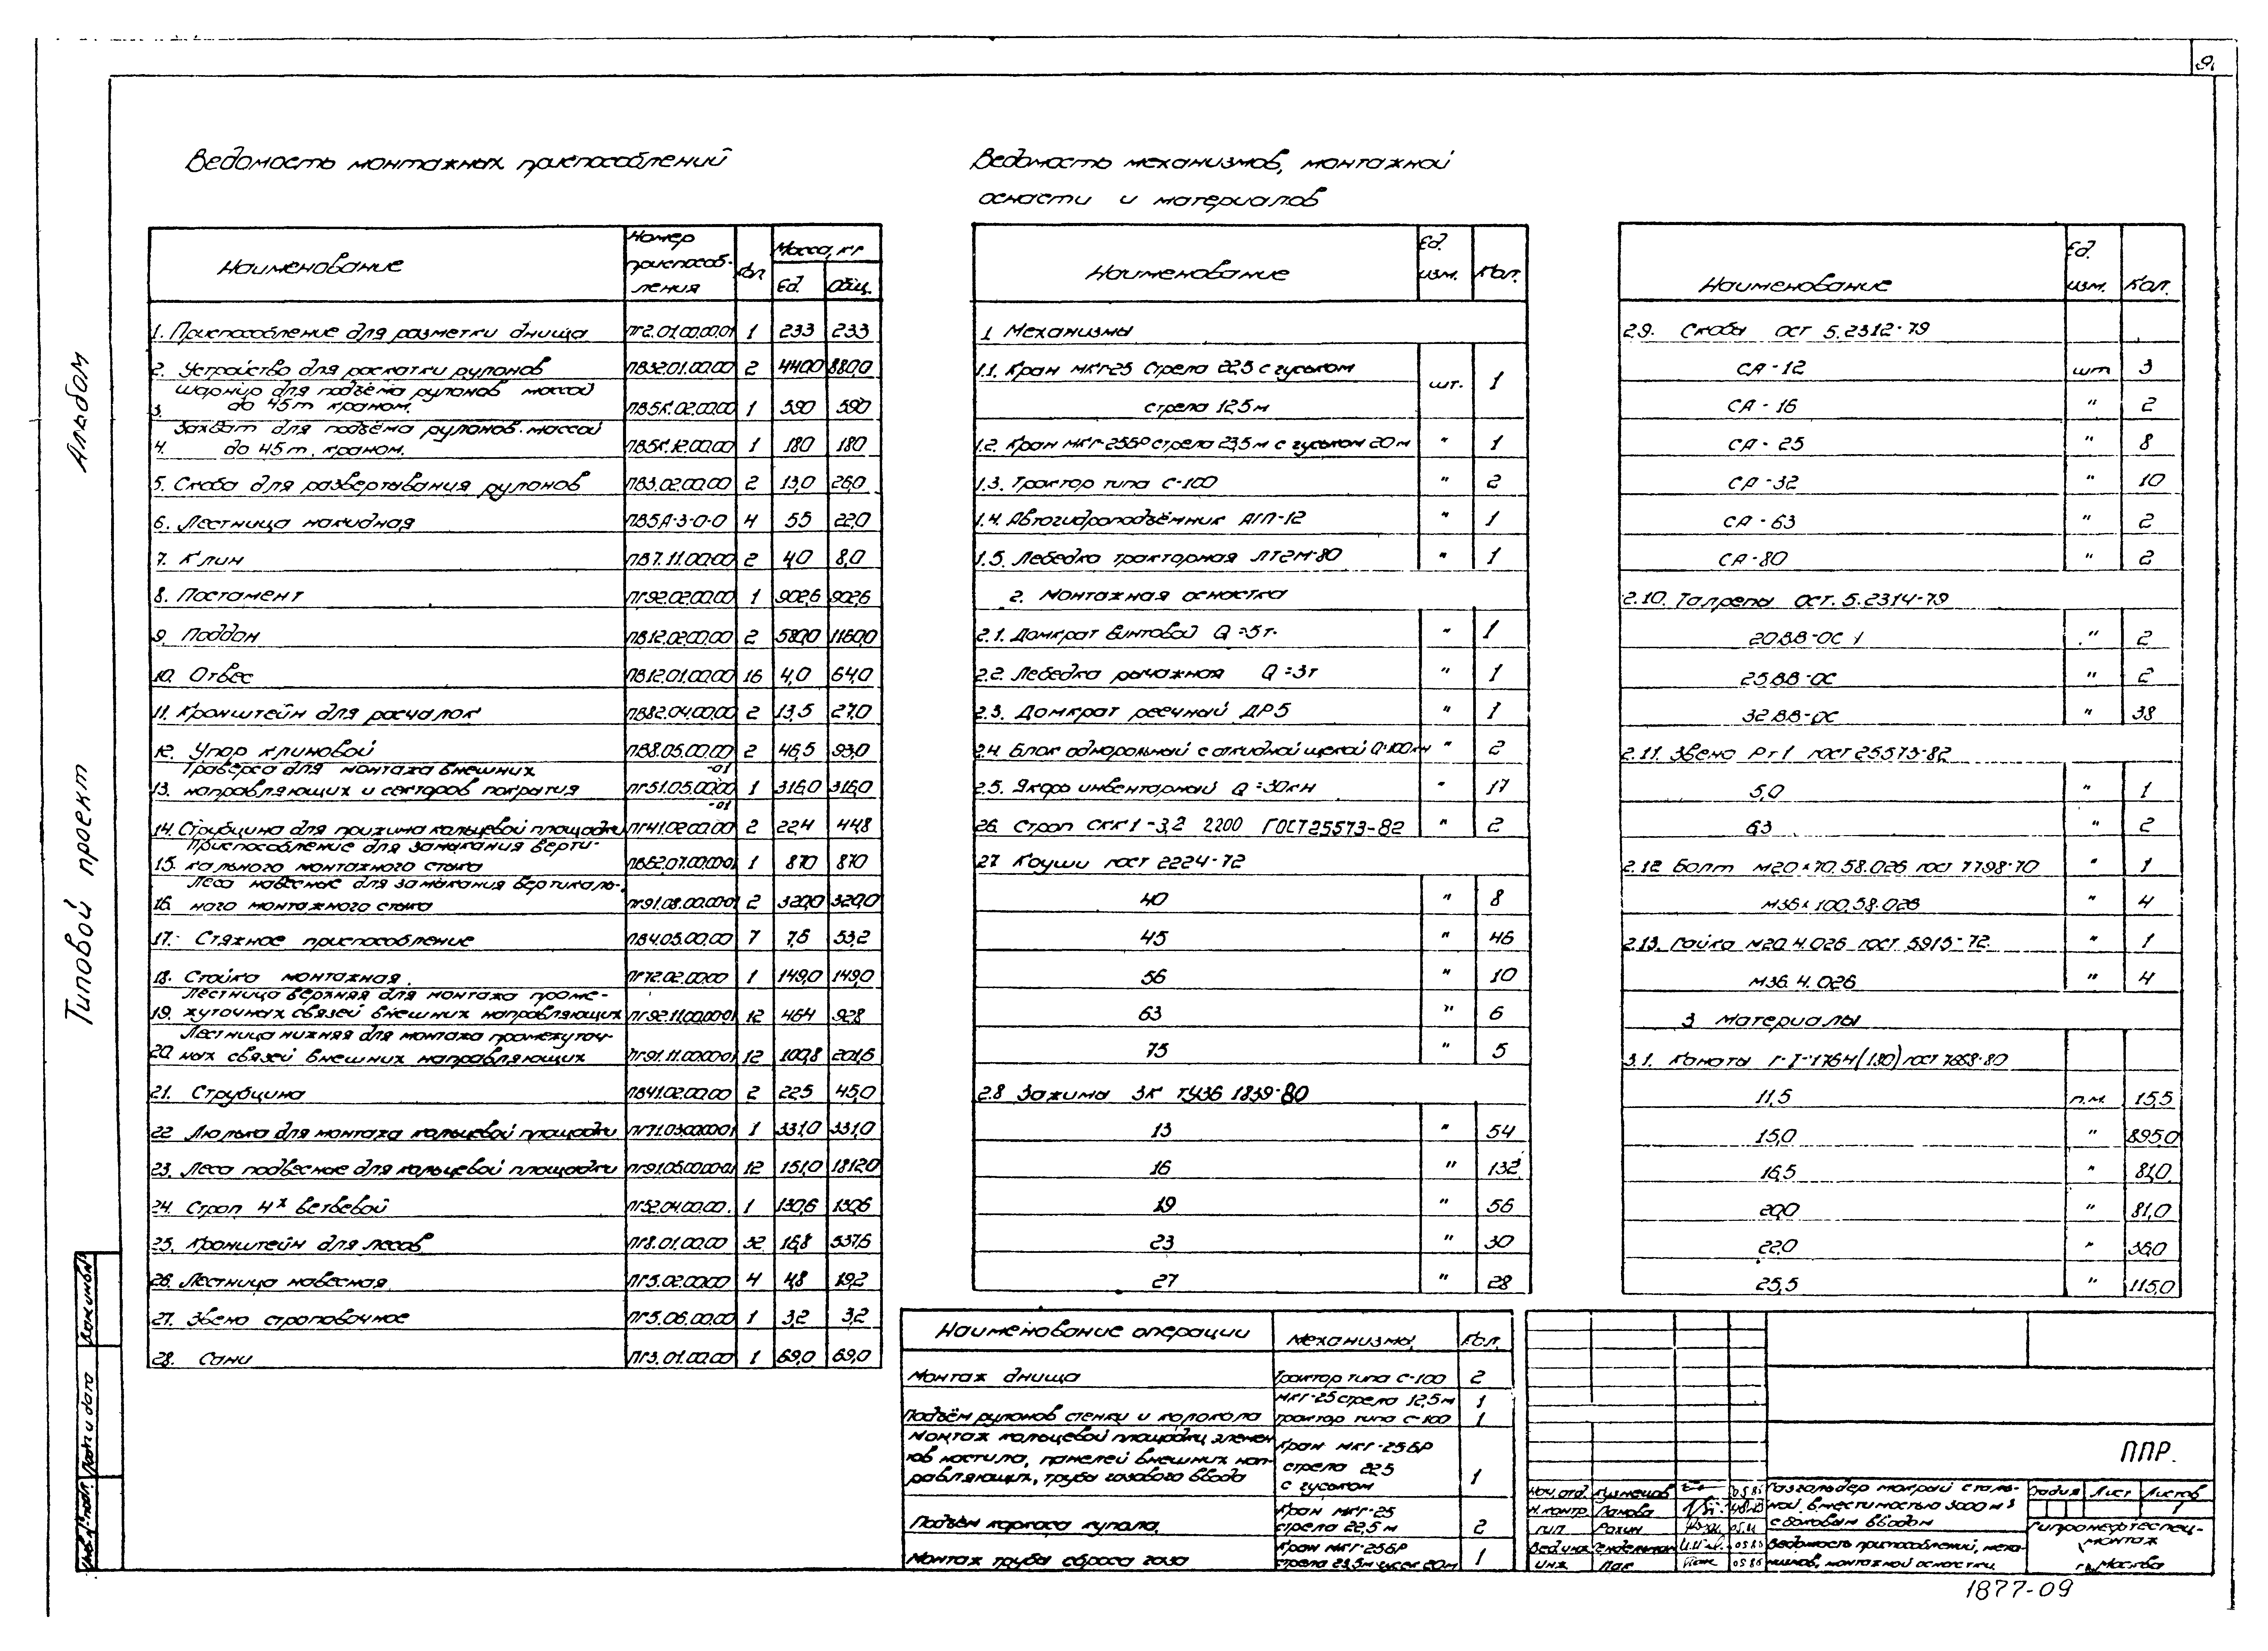 9.
Альбом
Типовой проект
Ведомость монтажных приспособлений
Наименование | Номер приспособ-ления | Кол | Масса, кг Ед. | Общ.
1. Приспособление для разметки днища | ПГ2.01.00.00.01 | 1 | 233 | 233
2. Устройство для раскатки рулонов | ПВ32.01.00.00 | 2 | 440,0 | 880,0
3. Шарнир для подъёма рулонов массой до 45т краном. | ПВ5К.02.00.00 | 1 | 590 | 590
4. Захват для подъёма рулонов массой до 45т. краном. | ПВ5К.12.00.00 | 1 | 180 | 180
5. Скоба для развертывания рулонов | ПВ3.02.00.00 | 2 | 13,0 | 26,0
6. Лестница накидная | ПВ5А-3-0-0 | 4 | 55 | 22,0
7. Клин | ПВ7.11.00.00 | 2 | 4,0 | 8,0
8. Постамент | ПГ92.02.00.00 | 1 | 902,6 | 902,6
9. Поддон | ПВ12.02.00.00 | 2 | 580,0 | 1160,0
10. Отвес | ПВ12.01.00.00 | 16 | 4,0 | 64,0
11. Кронштейн для расчалок | ПВ82.04.00.00 | 2 | 13,5 | 27,0
12. Упор клиновой | ПВ8.05.00.00 | 2 | 46,5 | 93,0
13. Траверса для монтажа внешних направляющих и секторов покрытия | ПГ51.05.00.00 -01 | 1 | 316,0 | 316,0
14. Струбцина для прижима кольцевой площадки | ПГ41.02.00.00 -01 | 2 | 22,4 | 44,8
15. Приспособление для замыкания верти-кального монтажного стыка | ПВ62.07.00.00-01 | 1 | 870 | 870
16. Леса навесные для замыкания вертикаль-ного монтажного стыка | ПГ91.08.00.00-01 | 2 | 320,0 | 320,0
17. Стяжное приспособление | ПВ4.05.00.00 | 7 | 7,6 | 53,2
18. Стойка монтажная. | ПГ72.02.00.00 | 1 | 149,0 | 149,0
19. Лестница верхняя для монтажа проме-жуточных связей внешних направляющих | ПГ92.11.00.00-01 | 12 | 46,4 | 928
20. Лестница нижняя для монтажа промежуточ-ных связей внешних направляющих | ПГ91.11.00.00-01 | 12 | 100,8 | 201,6
21. Струбцина | ПВ41.02.00.00 | 2 | 22,5 | 45,0
22 Люлька для монтажа кольцевой площадки | ПГ71.03.00.00-01 | 1 | 331,0 | 331,0
23. Леса подвесные для кольцевой площадки | ПГ91.05.00.00-01 | 12 | 151,0 | 1812,0
24. Строп 4х ветвевой | ПГ52.04.00.00. | 1 | 130,6 | 130,6
25. Кронштейн для лесов | ПГ8.01.00.00 | 32 | 16,8 | 537,6
26. Лестница навесная | ПГ5.02.00.00 | 4 | 4,8 | 19,2
27. Звено строповочное | ПГ5.06.00.00 | 1 | 3,2 | 3,2
28. Сани | ПГ3.01.00.00 | 1 | 69,0 | 69,0
Ведомость механизмов, монтажной
оснасти и материалов
Наименование | Ед. изм. | Кол.
1 Механизмы
1.1. Кран МКГ-25 Стрела 22,5 с гуськом
стрела 12,5м | шт. | 1
1.2. Кран МКГ-25БР стрела 23,5м с гуськом 20м | " | 1
1.3. Трактор типа С-100 | " | 2
1.4. Автогидроподъёмник АГП-12 | " | 1
1.5. Лебедка тракторная ЛТ2М-80 | " | 1
2. Монтажная оснастка
2.1. Домкрат винтовой Q=5т. | " | 1
2.2. Лебедка рычажная Q=3т | " | 1
2.3. Домкрат реечный ДР5 | " | 1
2.4. Блок однорольный с откидной щекой Q=100кн | " | 2
2.5. Якорь инвентарный Q=30кн | " | 17
2.6. Строп СКК1-3,2 2200 ГОСТ25573-82 | " | 2
2.7 Коуши гост 2224-72
40 | " | 8
45 | " | 46
56 | " | 10
63 | " | 6
75 | " | 5
2.8 Зажимы ЗК ТУ36 1839-80
13 | " | 54
16 | " | 132
19 | " | 56
23 | " | 30
27 | " | 28
Наименование | Ед. изм. | Кол.
2.9. Скобы ОСТ 5.2312-79
СА-12 | шт | 3
СА-16 | " | 2
СА-25 | " | 8
СА-32 | " | 10
СА-63 | " | 2
СА-80 | " | 2
2.10. Талрепы ОСТ.5.2314-79
20ВВ-ОС | " | 2
25ВВ-ОС | " | 2
32ВВ-ОС | " | 38
2.11. Звено Рт1 гост 25573-82
5,0 | " | 1
6,3 | " | 2
2.12 Болт М20×70.58.026 гост 7798-70 | " | 1
М36×100.58.026 | " | 4
2.13. Гайка М20.4.026 гост 5915-72. | " | 1
М36.4.026 | " | 4
3 Материалы
3.1. Канаты Г-I-1764(180) гост 7668-80
11,5 | п.м. | 15,5
15,0 | " | 895,0
16,5 | " | 81,0
20,0 | " | 81,0
22,0 | " | 36,0
25,5 | " | 115,0
Наименование операции | Механизмы | Кол.
Монтаж днища | Трактор типа С-100 | 2
Подъём рулонов стенки и колокола | МКГ-25 стрела 12,5м | 1
трактор типа С-100 | 1
Монтаж кольцевой площадки, элемен-
тов настила, панелей внешних нап-
равляющих, труба газового ввода | Кран МКГ-25БР стрела 22,5 с гуськом | 1
Подъём каркаса купола, | Кран МКГ-25 стрела 22,5м | 2
Монтаж труба сброса газа | Кран МКГ-25БР стрела 23,5м гусек 20м | 1
ППР.
Нач.отд. Кузнецов 05.86
Н.контр. Панова
ГИП Рахин 05.86
Вед.инж Гендельман 05.86
Инж Пак 05.86
Газгольдер мокрый сталь-
ной, вместимостью 3000 м³
с боковым вводом
Ведомость приспособлений, меха-
низмов, монтажной оснастки.
Стадия | Лист | Листов
1
Гипронефтеспец-
монтаж
г. Москва
Взам.инв№
Подп и дата
Инв.№ подл.
1877-09